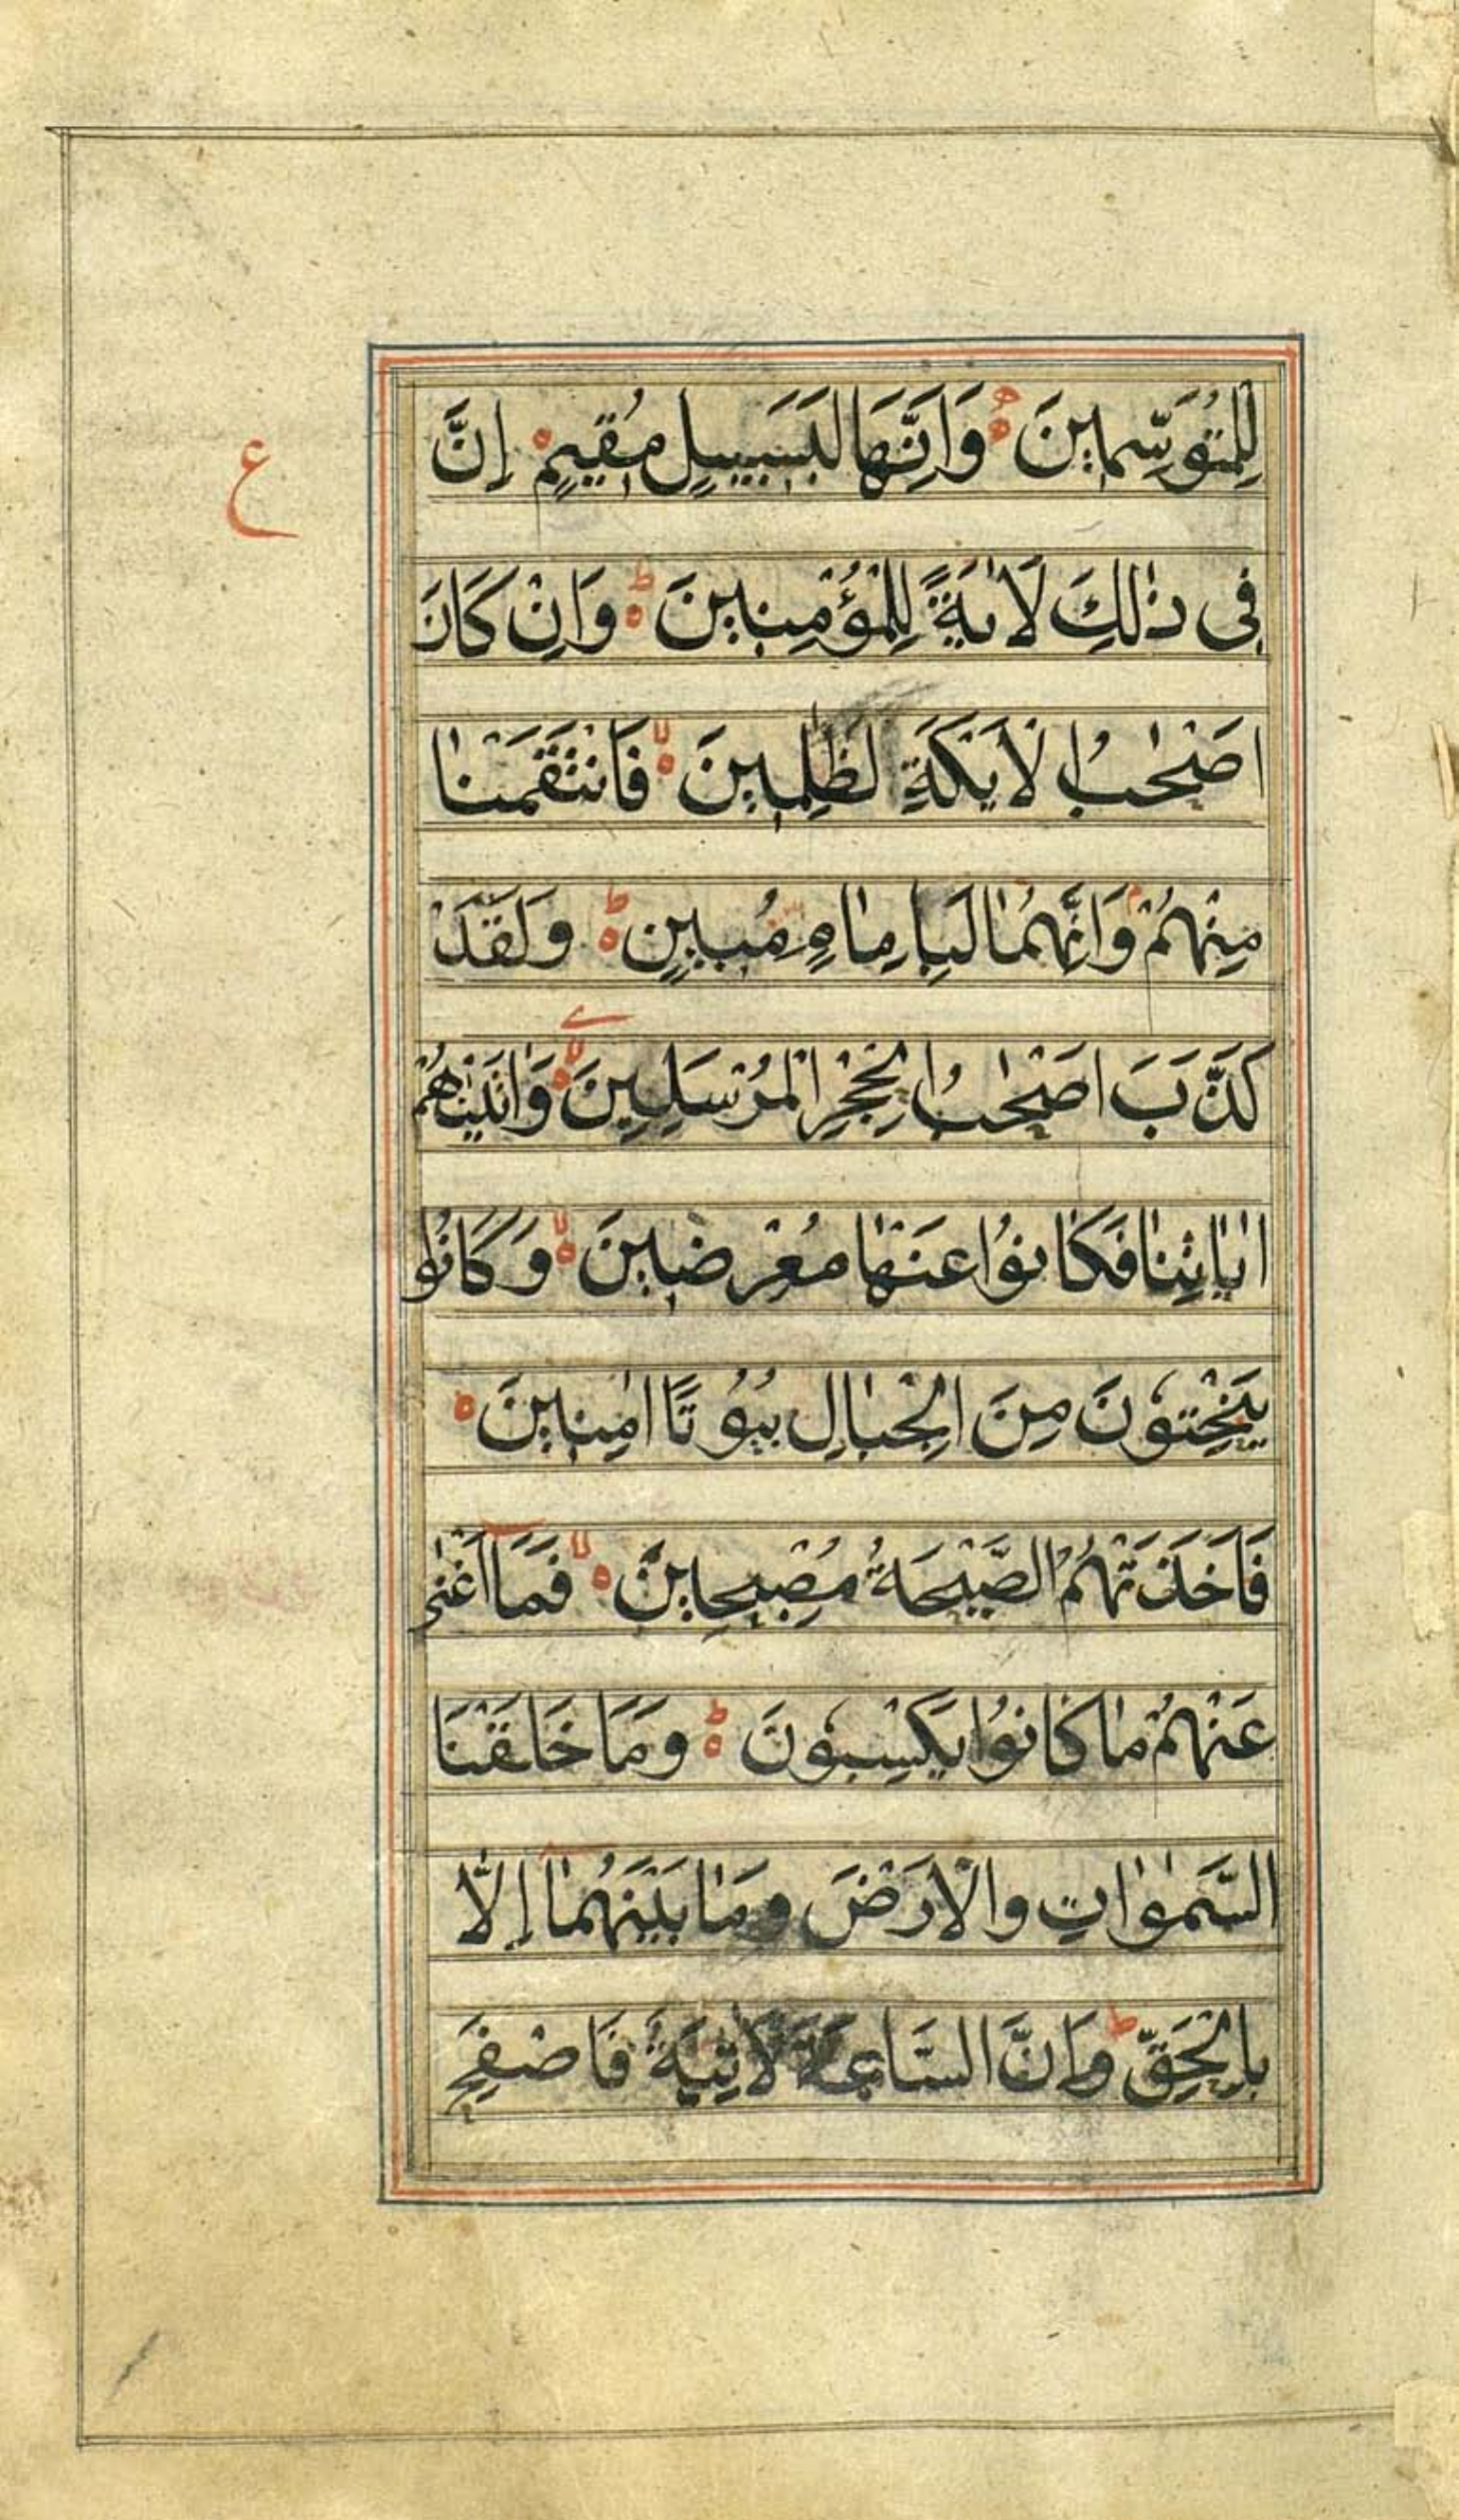 لِلْمُتَوَسِّمِينَ ۝ وَاِنَّهَا لَبِسَبِيلٍ مُقِيمٍ ۝ اِنَّ
ع
فِى ذٰلِكَ لَاٰيَةً لِلْمُؤْمِنِينَ ۝ ط وَاِنْ كَانَ
اَصْحٰبُ الْاَيْكَةِ لَظٰلِمِينَ ۝ لا فَانْتَقَمْنَا
مِنْهُمْ وَاِنَّهُمَا لَبِاِمَامٍ مُبِينٍ ۝ ط وَلَقَدْ
كَذَّبَ اَصْحٰبُ الْحِجْرِ الْمُرْسَلِينَ ۝ لا وَاٰتَيْنٰهُمْ
اٰيَاتِنَا فَكَانُوا عَنْهَا مُعْرِضِينَ ۝ لا وَكَانُوا
يَنْحِتُونَ مِنَ الْجِبَالِ بُيُوتًا اٰمِنِينَ ۝
فَاَخَذَتْهُمُ الصَّيْحَةُ مُصْبِحِينَ ۝ لا فَمَا اَغْنٰى
عَنْهُمْ مَا كَانُوا يَكْسِبُونَ ۝ ط وَمَا خَلَقْنَا
السَّمٰوَاتِ وَالْاَرْضَ وَمَا بَيْنَهُمَا اِلَّا
بِالْحَقِّ ط وَاِنَّ السَّاعَةَ لَاٰتِيَةٌ فَاصْفَحِ